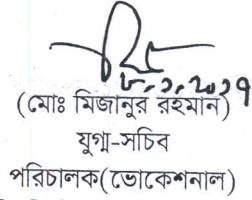 ৮.১.২০১৭
(মোঃ মিজানুর রহমান)
যুগ্ম-সচিব
পরিচালক(ভোকেশনাল)